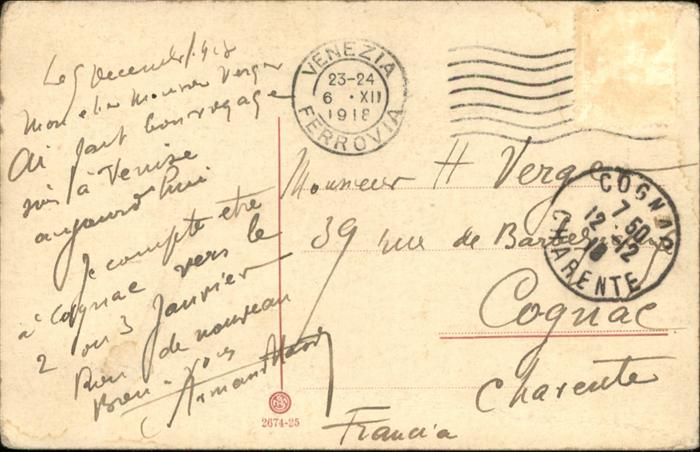 Le 5 Decembre 1918
Mon cher Monsieur Verger
Ai fait bon voyage
suis à Venise
aujourd'hui
Je compte être
à Cognac vers le
2 ou 3 Janvier
Rien de nouveau
Bien à vous
Armand
VENEZIA
23-24
6 · XII
1918
FERROVIA
Monsieur H Verger
39 rue de
Cognac
Charente
Francia
COGNAC
7 50
12 - 12
18
CHARENTE
2674-25